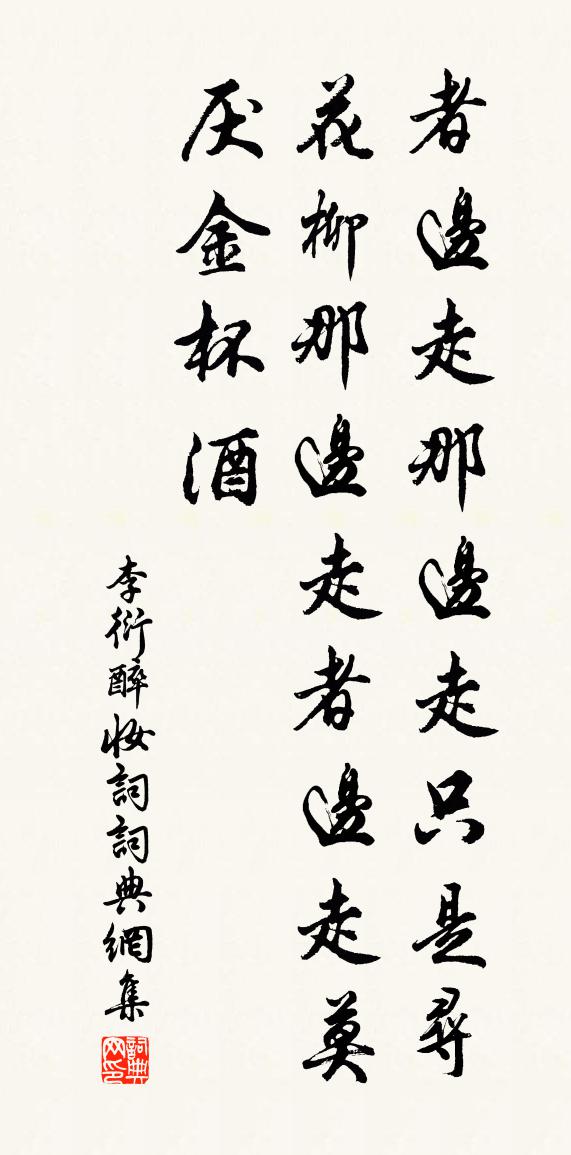 者邊走那邊走只是尋
花柳那邊走者邊走莫
厌金杯酒
李衍醉妆詞詞典網集
詞典网印